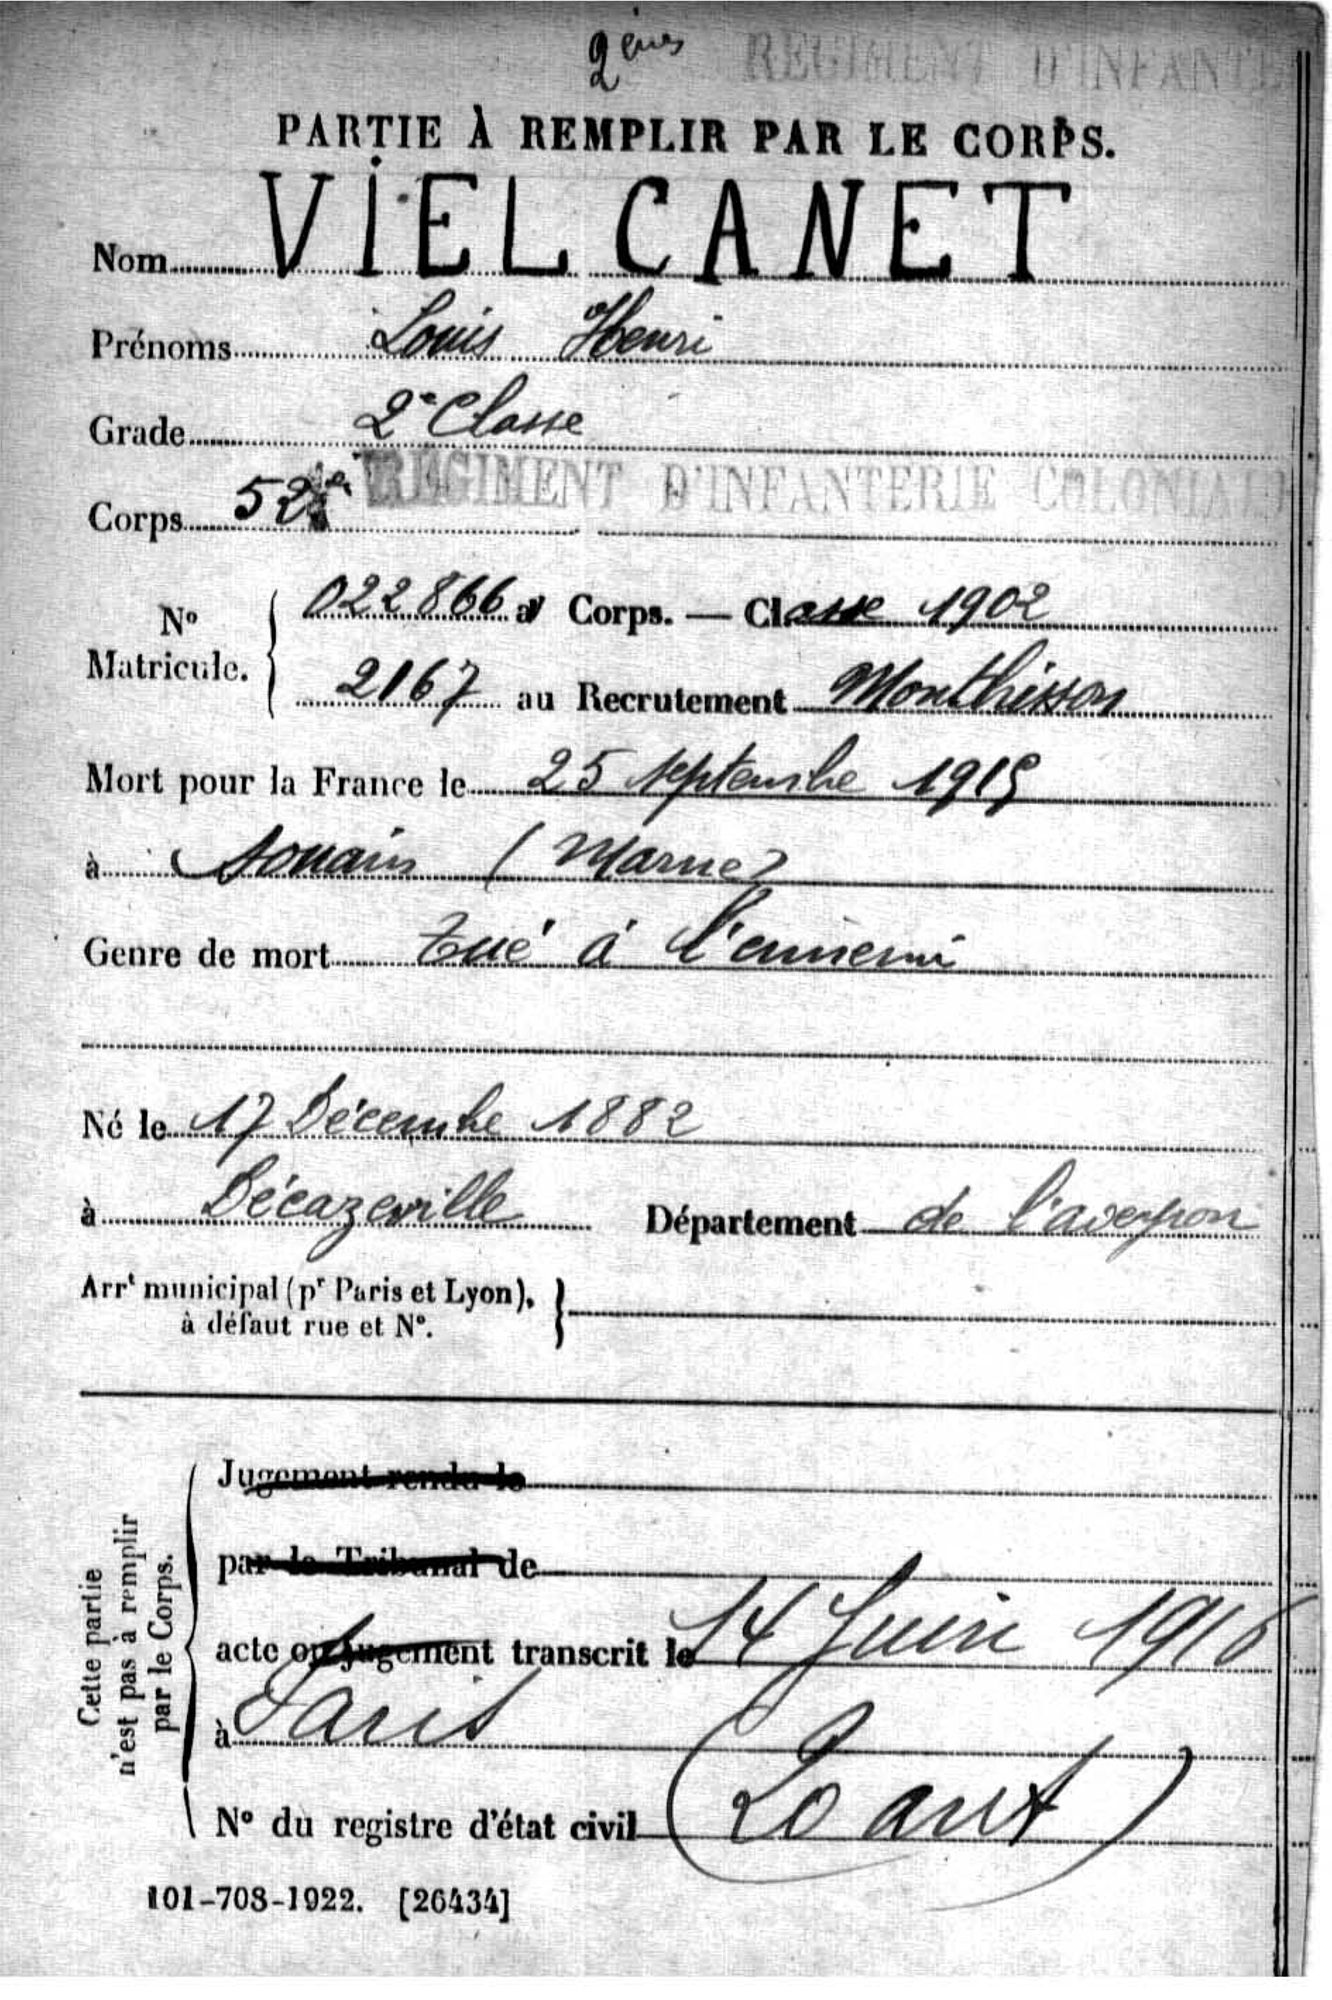 2èmes REGIMENT D'INFANTE
PARTIE À REMPLIR PAR LE CORPS.
Nom VIELCANET
Prénoms Louis Henri
Grade 2e Classe
Corps 52e REGIMENT D'INFANTERIE COLONIALE
N° Matricule. 022866 au Corps. — Classe 1902
2167 au Recrutement Montbrisson
Mort pour la France le 25 septembre 1915
à Souain (Marne)
Genre de mort tué à l'ennemi
Né le 17 Décembre 1882
à Décazeville Département de l'aveyron
Arrt municipal (pr Paris et Lyon),
à défaut rue et N°.
Cette partie
n'est pas à remplir
par le Corps.
Jugement rendu le
par le Tribunal de
acte ou jugement transcrit le 14 Juin 1916
à Paris
N° du registre d'état civil (20 arrt)
101-708-1922. [26434]